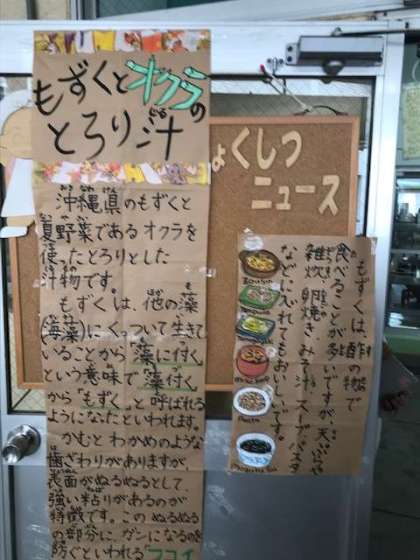 もずくとオクラの
とろり汁
しょくしつ
ニュース
沖縄県のもずくと
夏野菜であるオクラを
使ったとろりとした
汁物です。
もずくは、他の藻
(海藻)にくっついて生きて
いることから「藻に付く」
という意味で「藻付く」
から「もずく」と呼ばれる
ようになったといわれます。
かむとわかめのような
歯ごたわりがありますが、
表面がぬるぬるとして、
強い粘りがあるのが
特徴です。このぬるぬる
の部分に、ガンになるのを
防ぐといわれるフコイ
もずくは酢の物で
食べることが多いですが、天ぷらや
雑炊、卵焼き、みそ汁、スープ、パスタ
などに入れてもおいしいです。